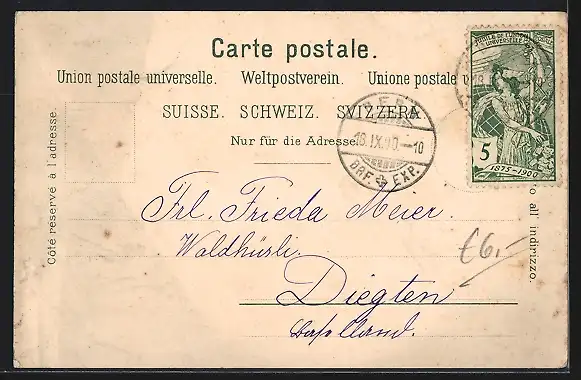 Carte postale.
Union postale universelle. Weltpostverein. Unione postale
SUISSE. SCHWEIZ. SVIZZERA
Nur für die Adresse.
Côté réservé à l'adresse.
JUBILÉ DE L'UNION POSTALE
UNIVERSELLE
5
1875-1900
BERN
16.IX.00.-10
BRF. EXP.
Frl. Frieda Meier
Waldhüsli.
Diegten
Baselland.
€6.-
all' indirizzo.